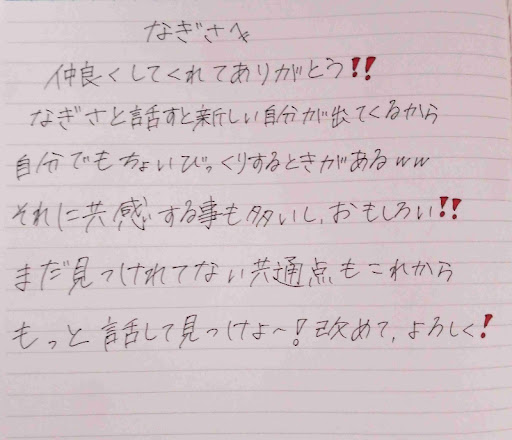 なぎさへ
仲良くしてくれてありがとう!!
なぎさと話すと新しい自分が出てくるから
自分でもちょいびっくりするときがあるww
それに共感する事も多いし、おもしろい!!
まだ見つけれてない共通点もこれから
もっと話して見つけよ〜!改めて、よろしく!